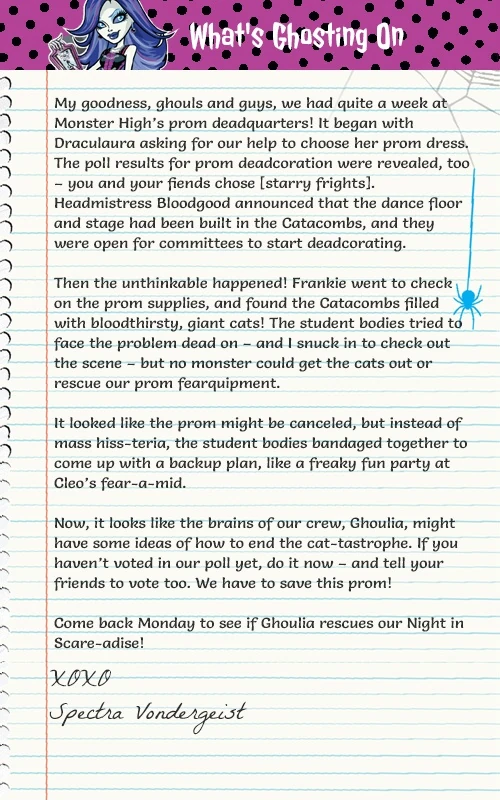 What's Ghosting On
My goodness, ghouls and guys, we had quite a week at
Monster High's prom deadquarters! It began with
Draculaura asking for our help to choose her prom dress.
The poll results for prom deadcoration were revealed, too
– you and your fiends chose [starry frights].
Headmistress Bloodgood announced that the dance floor
and stage had been built in the Catacombs, and they
were open for committees to start deadcorating.
Then the unthinkable happened! Frankie went to check
on the prom supplies, and found the Catacombs filled
with bloodthirsty, giant cats! The student bodies tried to
face the problem dead on – and I snuck in to check out
the scene – but no monster could get the cats out or
rescue our prom fearquipment.
It looked like the prom might be canceled, but instead of
mass hiss-teria, the student bodies bandaged together to
come up with a backup plan, like a freaky fun party at
Cleo's fear-a-mid.
Now, it looks like the brains of our crew, Ghoulia, might
have some ideas of how to end the cat-tastrophe. If you
haven't voted in our poll yet, do it now – and tell your
friends to vote too. We have to save this prom!
Come back Monday to see if Ghoulia rescues our Night in
Scare-adise!
XOXO
Spectra Vondergeist